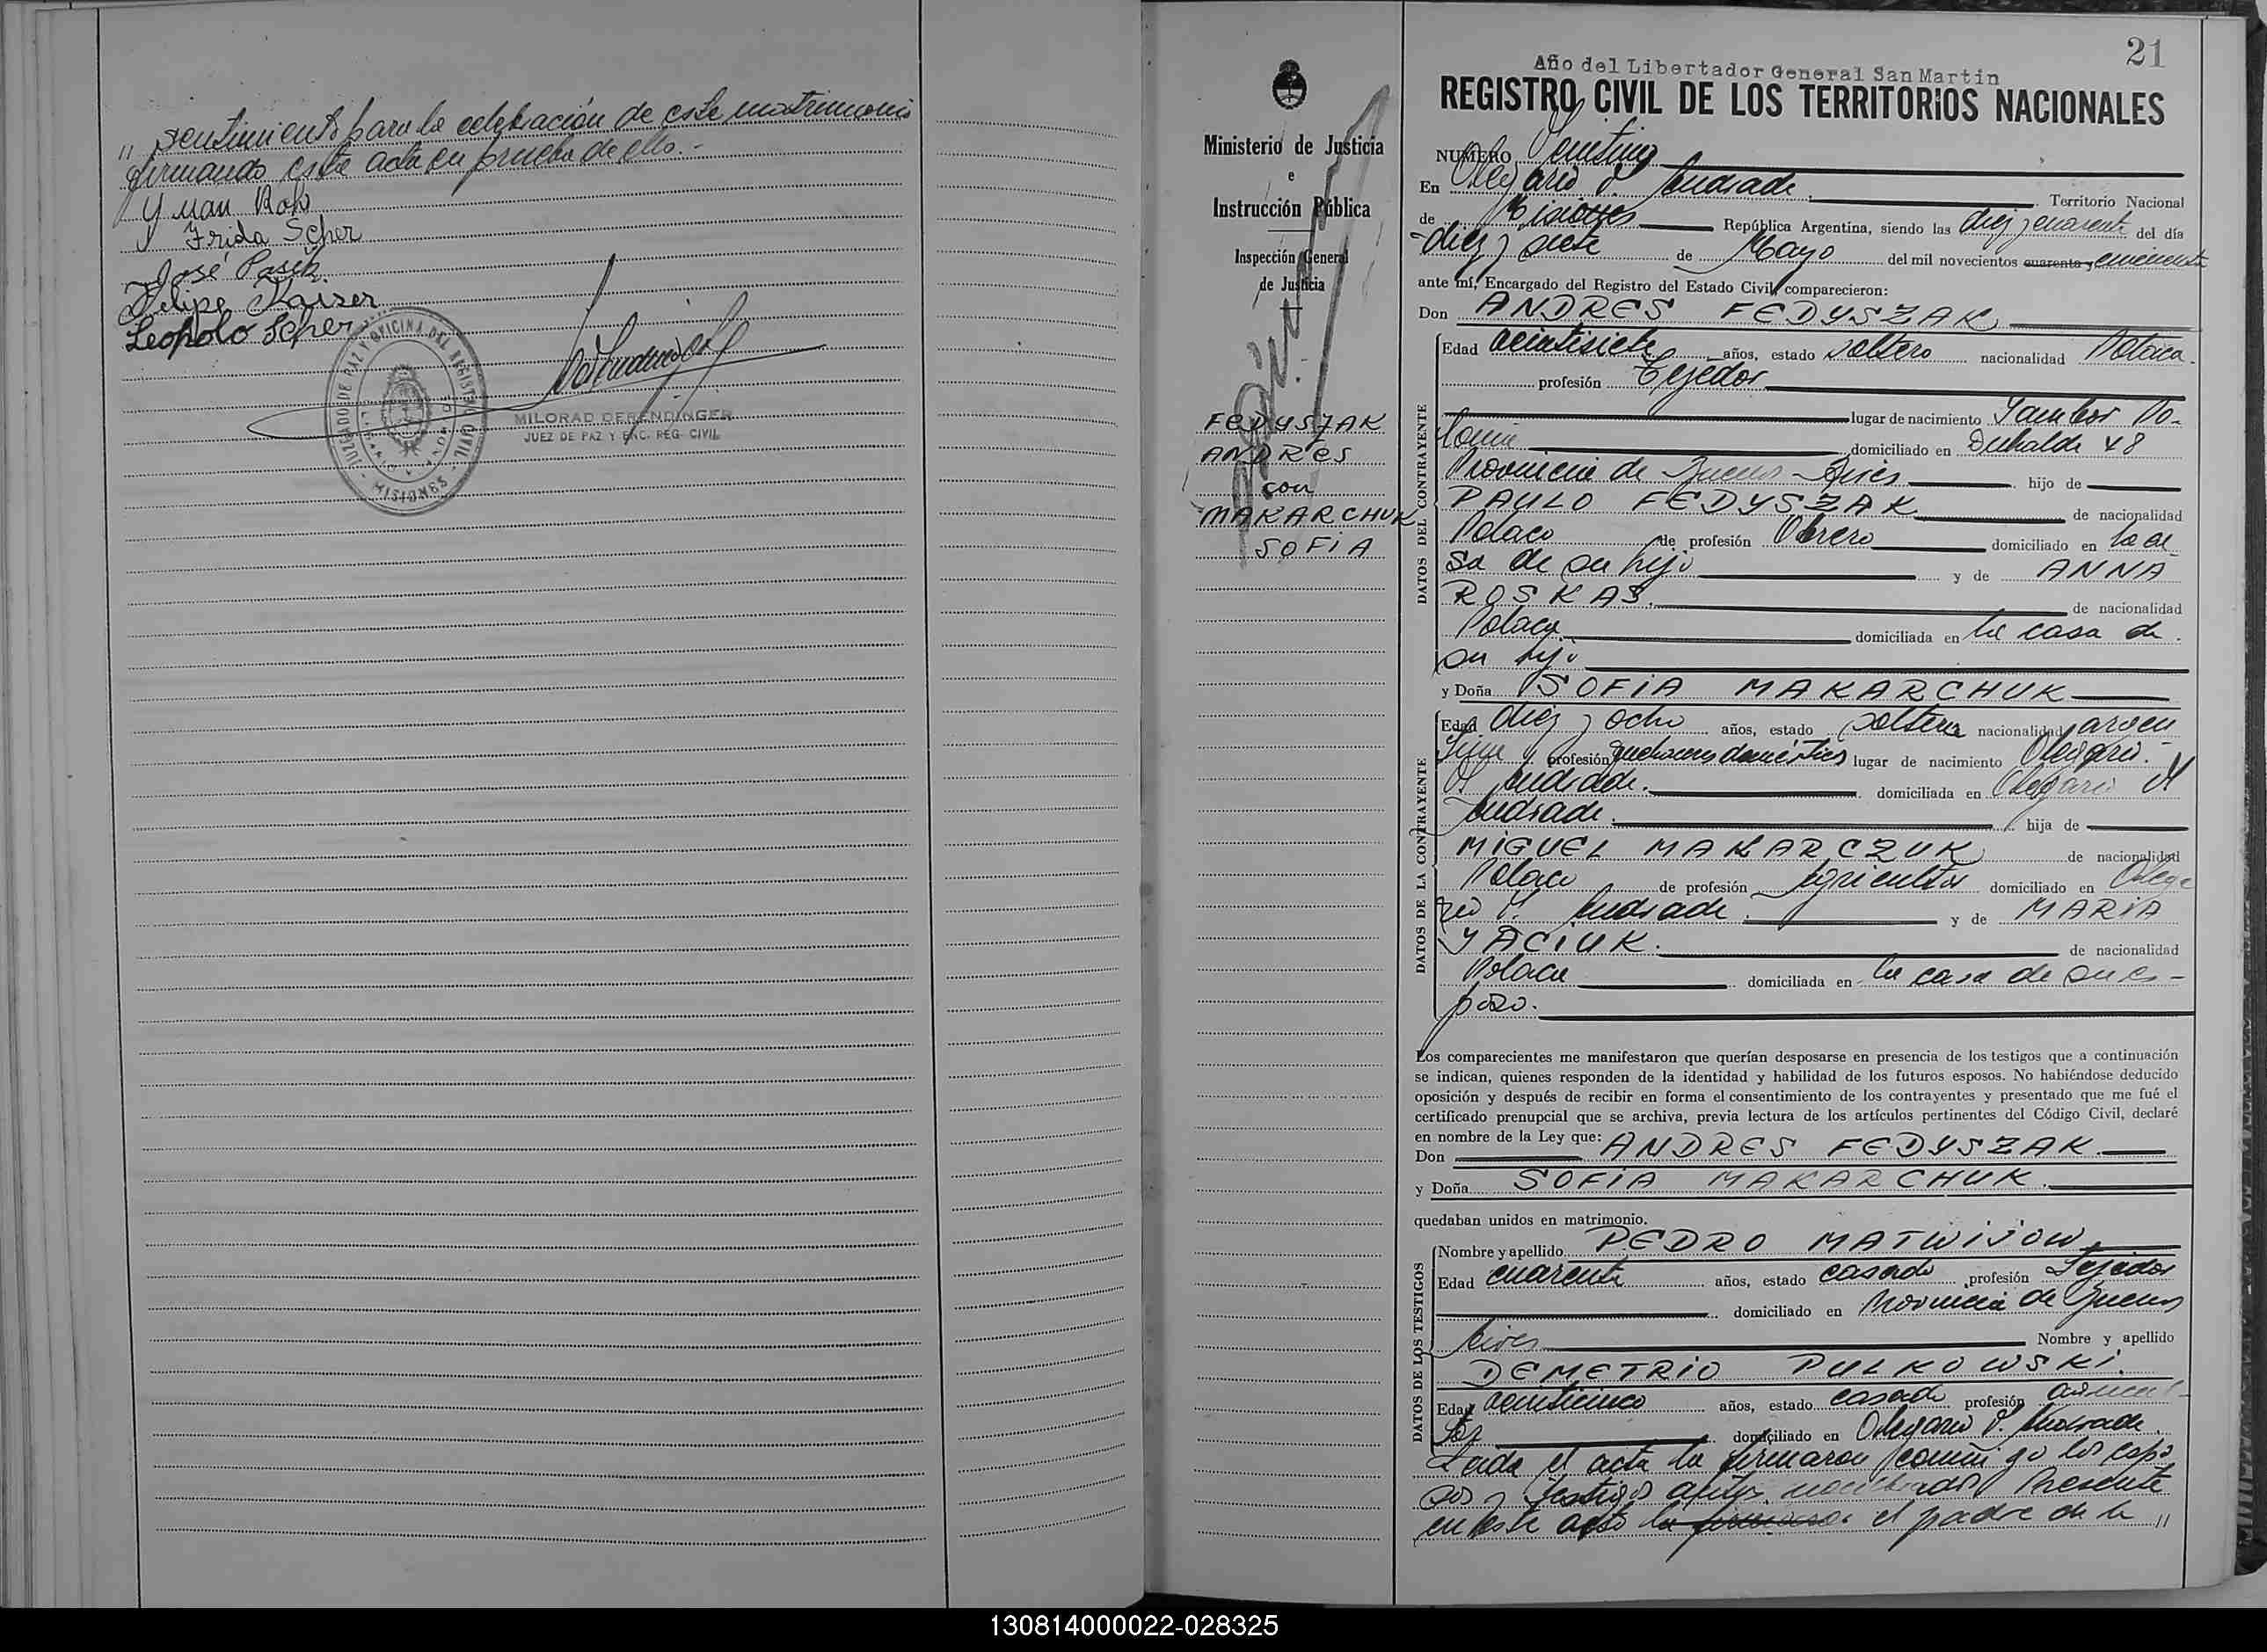 " sentimiento para la celebración de este matrimonio
firmando este acta en prueba de ello.-
Juan Roh
Frida Scher
José Pasik
Felipe Kaiser
Leopolo Scher
JUZGADO DE PAZ Y OFICINA DEL REGISTRO CIVIL
- MISIONES -
MILORAD DERENDINGER
JUEZ DE PAZ Y ENC. REG. CIVIL
21
Ministerio de Justicia
e
Instrucción Pública
Inspección General
de Justicia
FEDYSZAK
ANDRES
con
MAKARCHUK
SOFIA
Año del Libertador General San Martín
REGISTRO CIVIL DE LOS TERRITORIOS NACIONALES
NUMERO
En Olegario V. Andrade. Territorio Nacional
de Misiones República Argentina, siendo las diez y cuarenta del día
diez y siete de Mayo del mil novecientos cuarenta y cincuenta
ante mí, Encargado del Registro del Estado Civil, comparecieron:
Don ANDRES FEDYSZAK
DATOS DEL CONTRAYENTE
Edad veintisiete años, estado soltero nacionalidad Polaca.
profesión Tejedor
lugar de nacimiento Sambor Po-
lonia domiciliado en Duhalde 48
Provincia de Buenos Aires hijo de
PAULO FEDYSZAK de nacionalidad
Polaco de profesión Obrero domiciliado en la ca-
sa de su hijo y de ANNA
ROSKAS. de nacionalidad
Polaca. domiciliada en la casa de
su hijo
y Doña SOFIA MAKARCHUK
DATOS DE LA CONTRAYENTE
Edad diez y ocho años, estado soltera nacionalidad argen
tina profesión quehaceres domésticos lugar de nacimiento Olegario.-
V. Andrade. domiciliada en Olegario V
Andrade. hija de
MIGUEL MAKARCZUK de nacionalidad
Polaco de profesión agricultor domiciliado en Olega
rio V. Andrade. y de MARIA
YACIUK. de nacionalidad
Polaca domiciliada en la casa de su es-
poso.
Los comparecientes me manifestaron que querían desposarse en presencia de los testigos que a continuación
se indican, quienes responden de la identidad y habilidad de los futuros esposos. No habiéndose deducido
oposición y después de recibir en forma el consentimiento de los contrayentes y presentado que me fué el
certificado prenupcial que se archiva, previa lectura de los artículos pertinentes del Código Civil, declaré
en nombre de la Ley que:
Don ANDRES FEDYSZAK.
y Doña SOFIA MAKARCHUK.
quedaban unidos en matrimonio.
DATOS DE LOS TESTIGOS
Nombre y apellido PEDRO MATWIJOW
Edad cuarenta años, estado casado profesión Tejedor
domiciliado en Provincia de Buenos
Aires Nombre y apellido
DEMETRIO PULKOWSKI.
Edad veinticinco años, estado casado profesión agricul-
tor domiciliado en Olegario V. Andrade
Leida el acta la firmaron conmigo los espo
sos y testigos antes nombrados Presente
en este acto la firmaron el padre de la "
130814000022-028325